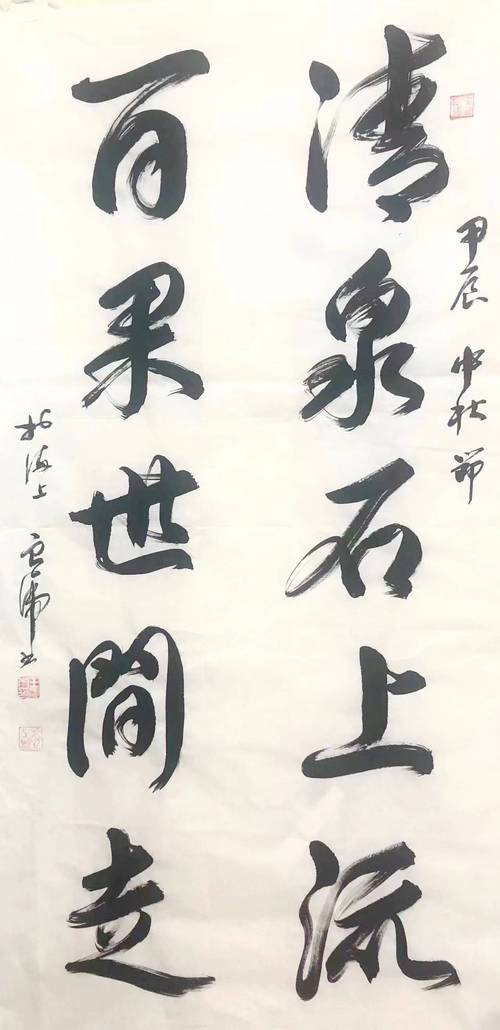 甲辰中秋节
清泉石上流
百果世間走
於海上